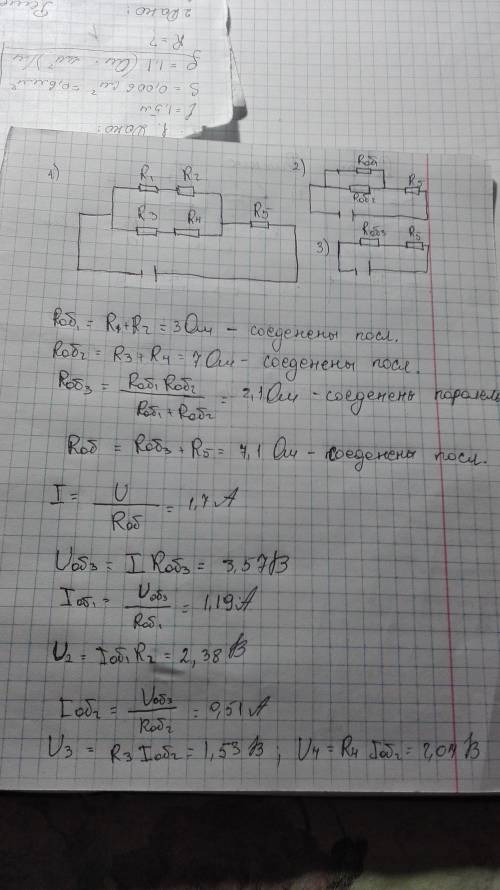 1. Дано:
l = 1,5м
S = 0,006 см² = 0,6мм²
ρ = 1,1 (Ом · мм²)/м
R = ?
2 Дано:
1)
R1 R2
R3 R4
R5
2)
Rоб1
Rоб2
R5
3)
Rоб3 R5
Rоб1 = R1+R2 = 3 Ом – соеденены посл.
Rоб2 = R3+R4 = 7 Ом – соеденены посл.
Rоб3 = Rоб1 Rоб2 / Rоб1 + Rоб2 = 2,1 Ом – соеденены паралель
Rоб = Rоб3 + R5 = 7,1 Ом – соеденены посл.
I = U / Rоб = 1,7 А
Uоб3 = I Rоб3 = 3,57 В
Iоб1 = Uоб3 / Rоб1 = 1,19 А
U2 = Iоб1 R2 = 2,38 В
Iоб2 = Uоб3 / Rоб2 = 0,51 А
U3 = R3 Iоб2 = 1,53 В ; U4 = R4 Iоб2 = 2,04 В